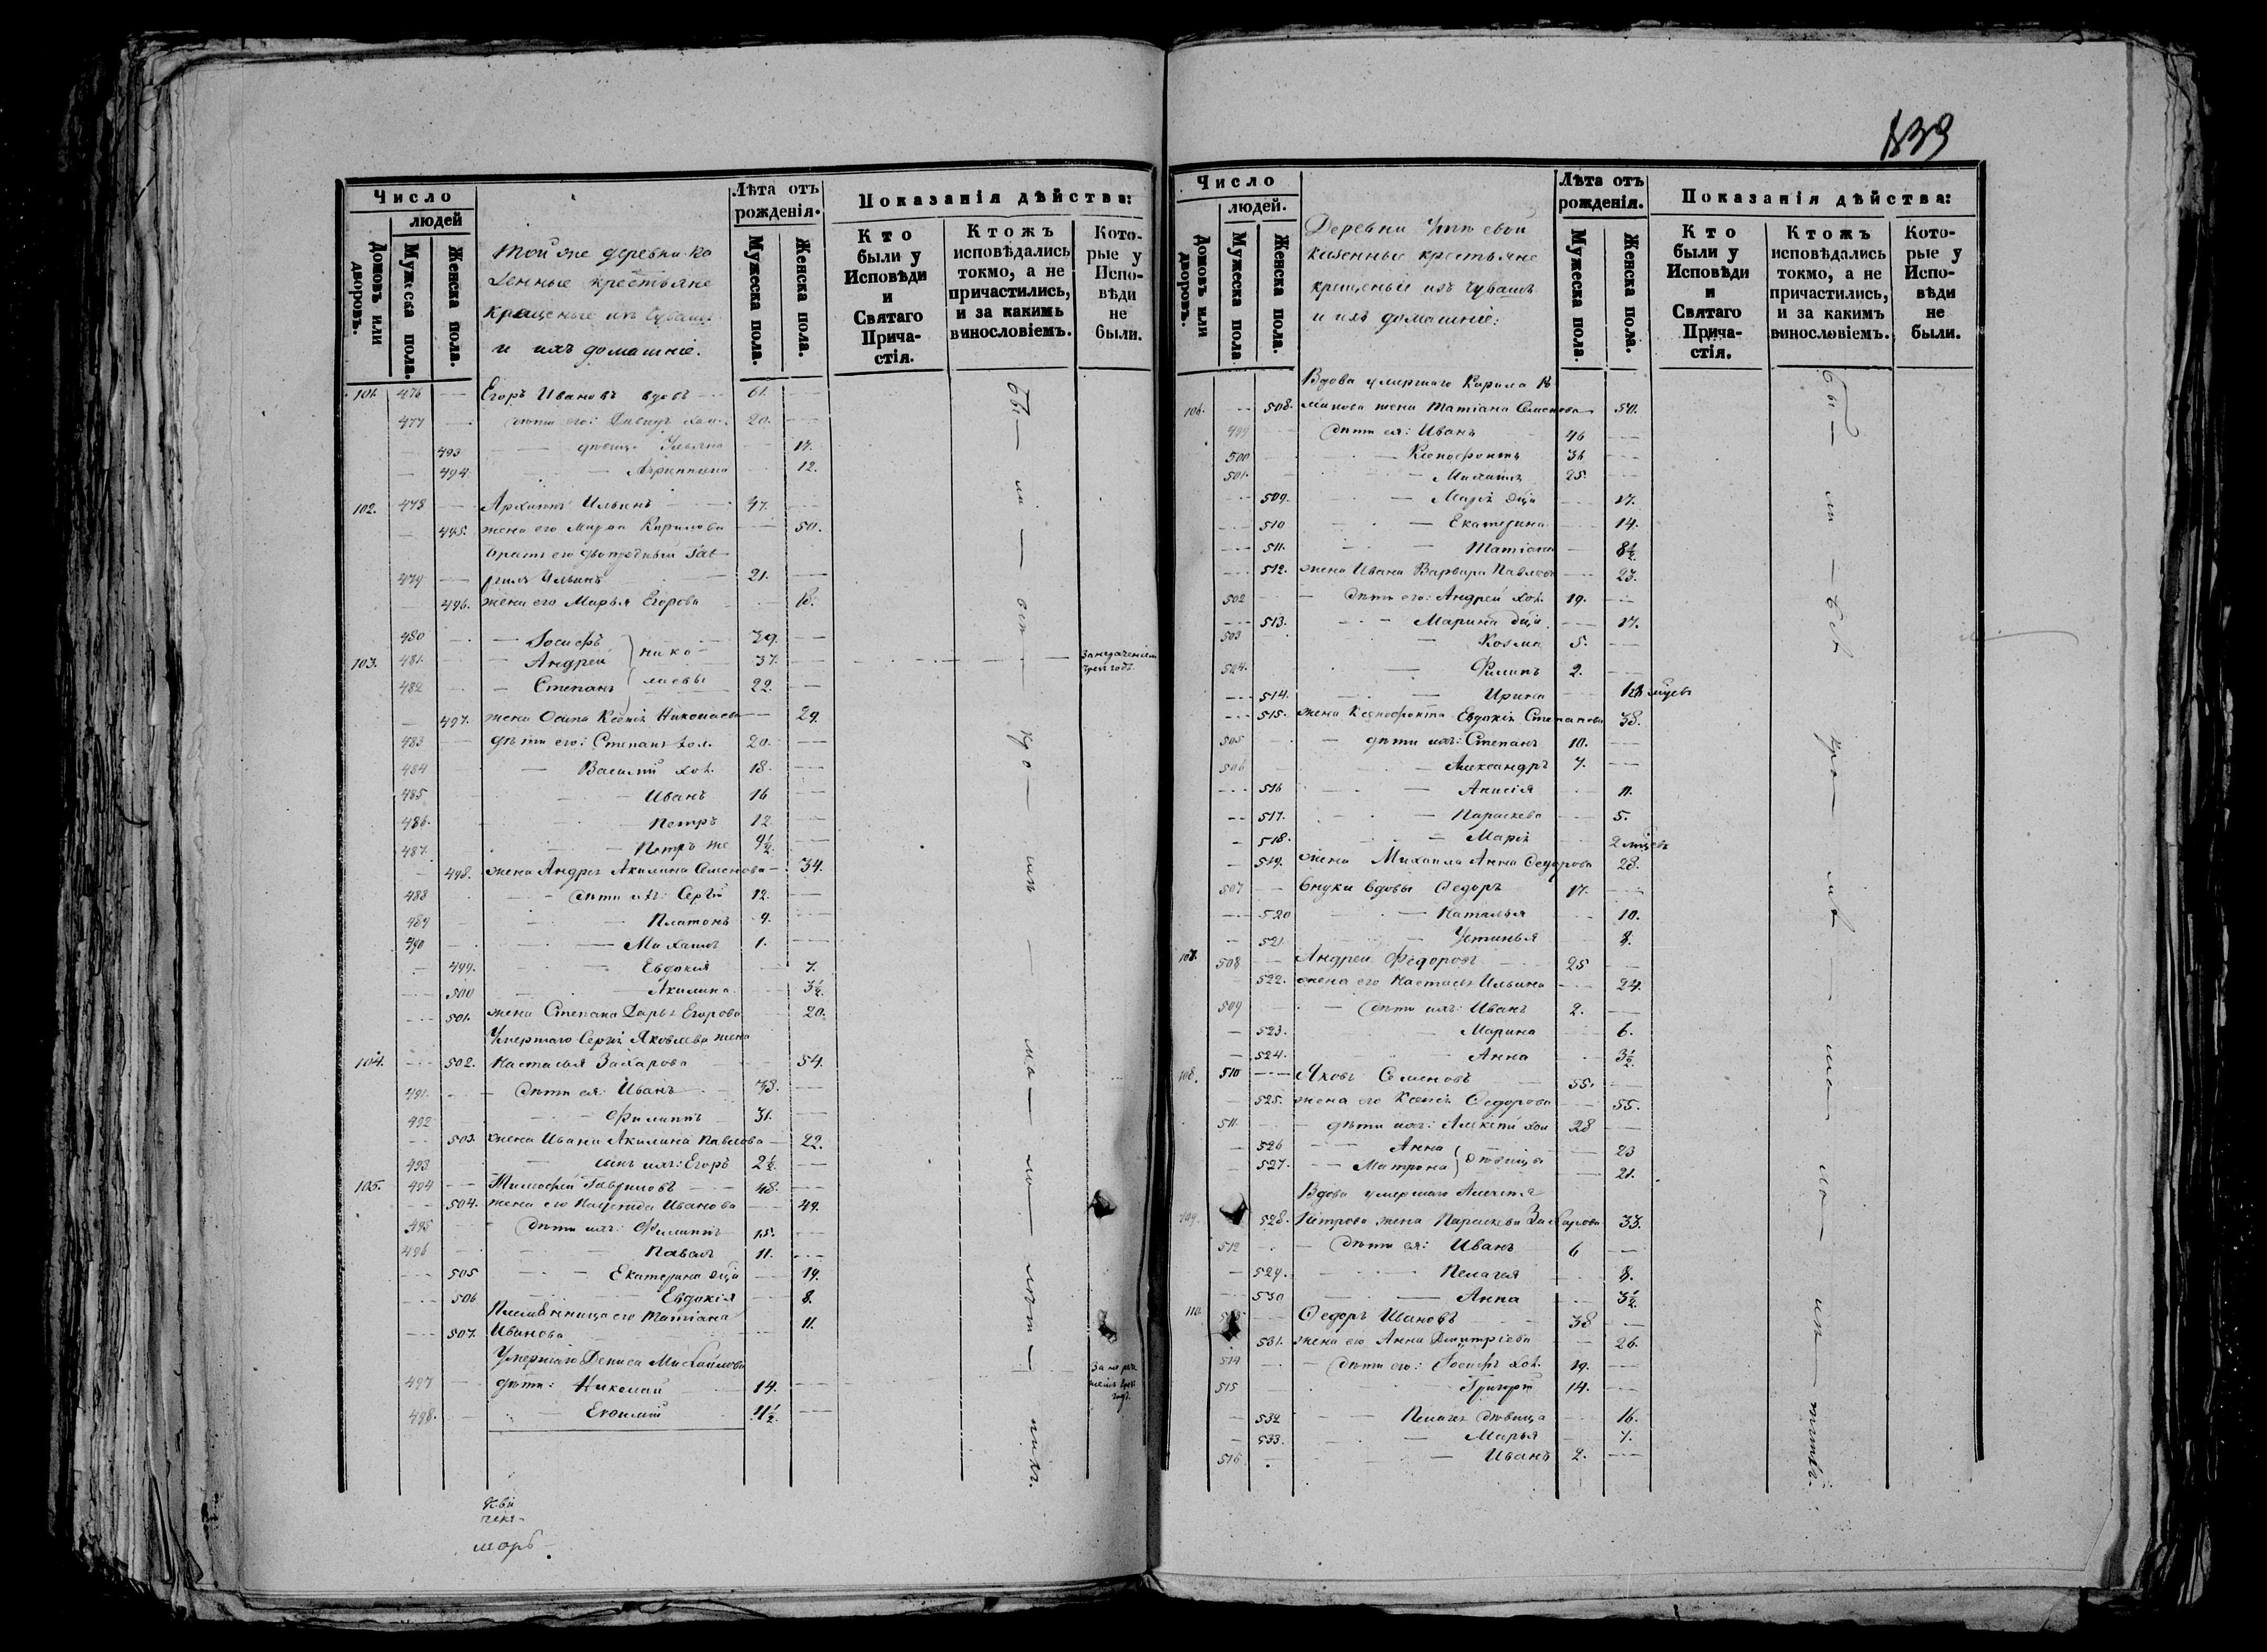 Число
людей
Домовъ или дворовъ.
Мужеска пола.
Женска пола.
Той же деревни ка
зенные крестьяне
крещеные изъ чувашъ
и ихъ домашніе.
Лѣта отъ рожденія.
Мужеска пола.
Женска пола.
Показанія дѣйства:
Кто были у Исповѣди и Святаго Прича-стія.
Ктожъ исповѣдались токмо, а не причастились, и за какимъ винословіемъ.
Кото-рые у Испо-вѣди не были.
101. 476 Егоръ Ивановъ вдовъ 61.
477 дѣти его: Давидъ хол. 20.
493 дѣвица Ульяна 17.
494 Агрипина 12.
102. 478 Архипъ Ильинъ 47.
495. жена его Марѳа Кирилова 50.
братъ его двоюродный Гав
479 рилъ Ильинъ 21.
496. жена его Марья Егорова 18.
480 Іосифъ 39.
103. 481. Андрей нико 37.
482 Степанъ лаевы 22.
497. жена Осипа Ксенія Николаева 29.
483 дѣти его: Степанъ хол. 20.
484 Василій хол. 18.
485 Иванъ 16
486. Петръ 12.
487. Петръ же 9½.
498. жена Андрея Акилина Семенова 34.
488 дѣти ихъ: Сергѣй 12.
489 Платонъ 9.
490 Михаилъ 1.
499. Евдокия 7.
500 Акилина 3½.
501. жена Степана Дарья Егорова 20.
Умершаго Сергія Яковлева жена
104. 502. Настасья Захарова 54.
491. дѣти ея: Иванъ 33.
492 Филиппъ 31.
503. жена Ивана Акилина Павлова 22.
493 сынъ ихъ: Егоръ 2½.
105. 494 Тимофей Гавриловъ 48.
504. жена его Иванова 49.
495 дѣти ихъ: Филиппъ 15.
496 Павелъ 11.
505 Екатерина дѣца 19.
506 Евдокія 8.
Племянница его Татіана
507. Иванова 11.
Умершаго Дениса Михайлова
497 дѣти: Николай 14.
498. 11½.
шоръ
139
Число
людей.
Домовъ или дворовъ.
Мужеска пола
Женска пола.
Деревни
казенные крестьяне
крещеные изъ чувашъ
и ихъ домашніе:
Лѣта отъ рожденія.
Мужеска пола.
Женска пола.
Показанія дѣйства:
Кто были у Исповѣди и Святаго Прича-стія.
Ктожъ исповѣдались токмо, а не причастились, и за какимъ винословіемъ.
Кото-рые у Испо-вѣди не были.
Вдова умершаго Кирила
106. 508. жена Татіана Семенова 50.
499 дѣти ея: Иванъ 46
500 Ксенофонтъ 36
501. Михаилъ 25.
509. Марія дѣца 17.
510 Екатерина 14.
511. Татіана 8½.
512. жена Ивана Варвара Павлова 23.
502 дѣти его: Андрей хол. 19.
513. Марина дѣца 17.
503 Козма 5.
504. Филипъ 2.
514. Ирина
515. жена Ксенофонта Евдокія Степанова 38.
505 дѣти ихъ: Степанъ 10.
506 Александръ 7.
516 Анисія 11.
517. Параскева 5.
518. Марія 2 мѣсяцъ
519. жена Михаила Анна Федорова 28.
507 внуки вдовы Федоръ 17.
520 Наталья 10.
521. Устинья 8.
107. 508 Андрей Федоровъ 25
522. жена его Настасья Ильина 24.
509 дѣти ихъ: Иванъ 2.
523. Марина 6.
524. Анна 3½.
108. 510 Яковъ Семеновъ 55.
525. жена его Ксенія Федорова 55.
511. дѣти ихъ: Алексѣй хол 28
526 Анна 23
527. Матрона дѣвицы 21.
Вдова умершаго
109. 528. Петрова жена Параскева Захарова 33.
512 дѣти ея: Иванъ 6
529. Пелагея 8.
530 Анна 3½.
110. 513 Федоръ Ивановъ 38
531. жена его Анна Дмитріева 26.
514 дѣти его: Іосифъ хол. 19.
515 Григорій 14.
532 Пелагея дѣвица 16.
533. Марья 7.
516 Иванъ 2.